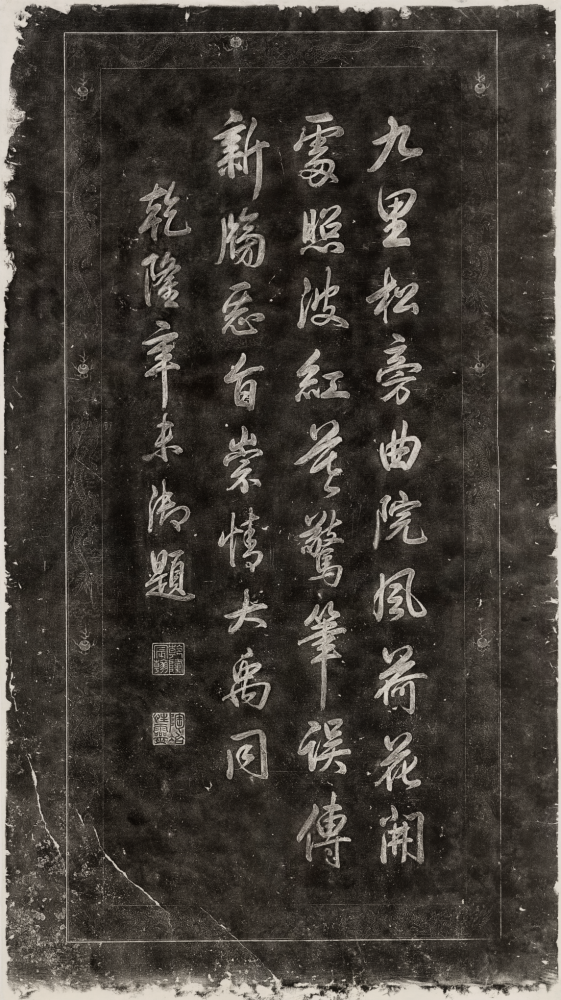 九里松旁曲院風荷花開
處照波紅莫驚筆誤傳
新牓惡旨崇情大禹同
乾隆辛未御題
乾隆宸翰